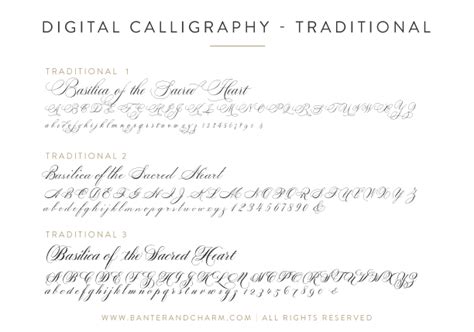 DIGITAL CALLIGRAPHY - TRADITIONAL
TRADITIONAL 1
Basilica of the Sacred Heart
ABCDEFGHIJKLMNOPQRSTUVWXYZ
abcdefghijklmnopqrstuvwxyz 1234567890 &
TRADITIONAL 2
Basilica of the Sacred Heart
ABCDEFGHIJKLMNOPQRSTUVWXYZ
abcdefghijklmnopqrstuvwxyz 1234567890 &
TRADITIONAL 3
Basilica of the Sacred Heart
ABCDEFGHIJKLMNOPQRSTUVWXYZ
abcdefghijklmnopqrstuvwxyz 1234567890 &
WWW.BANTERANDCHARM.COM | ALL RIGHTS RESERVED